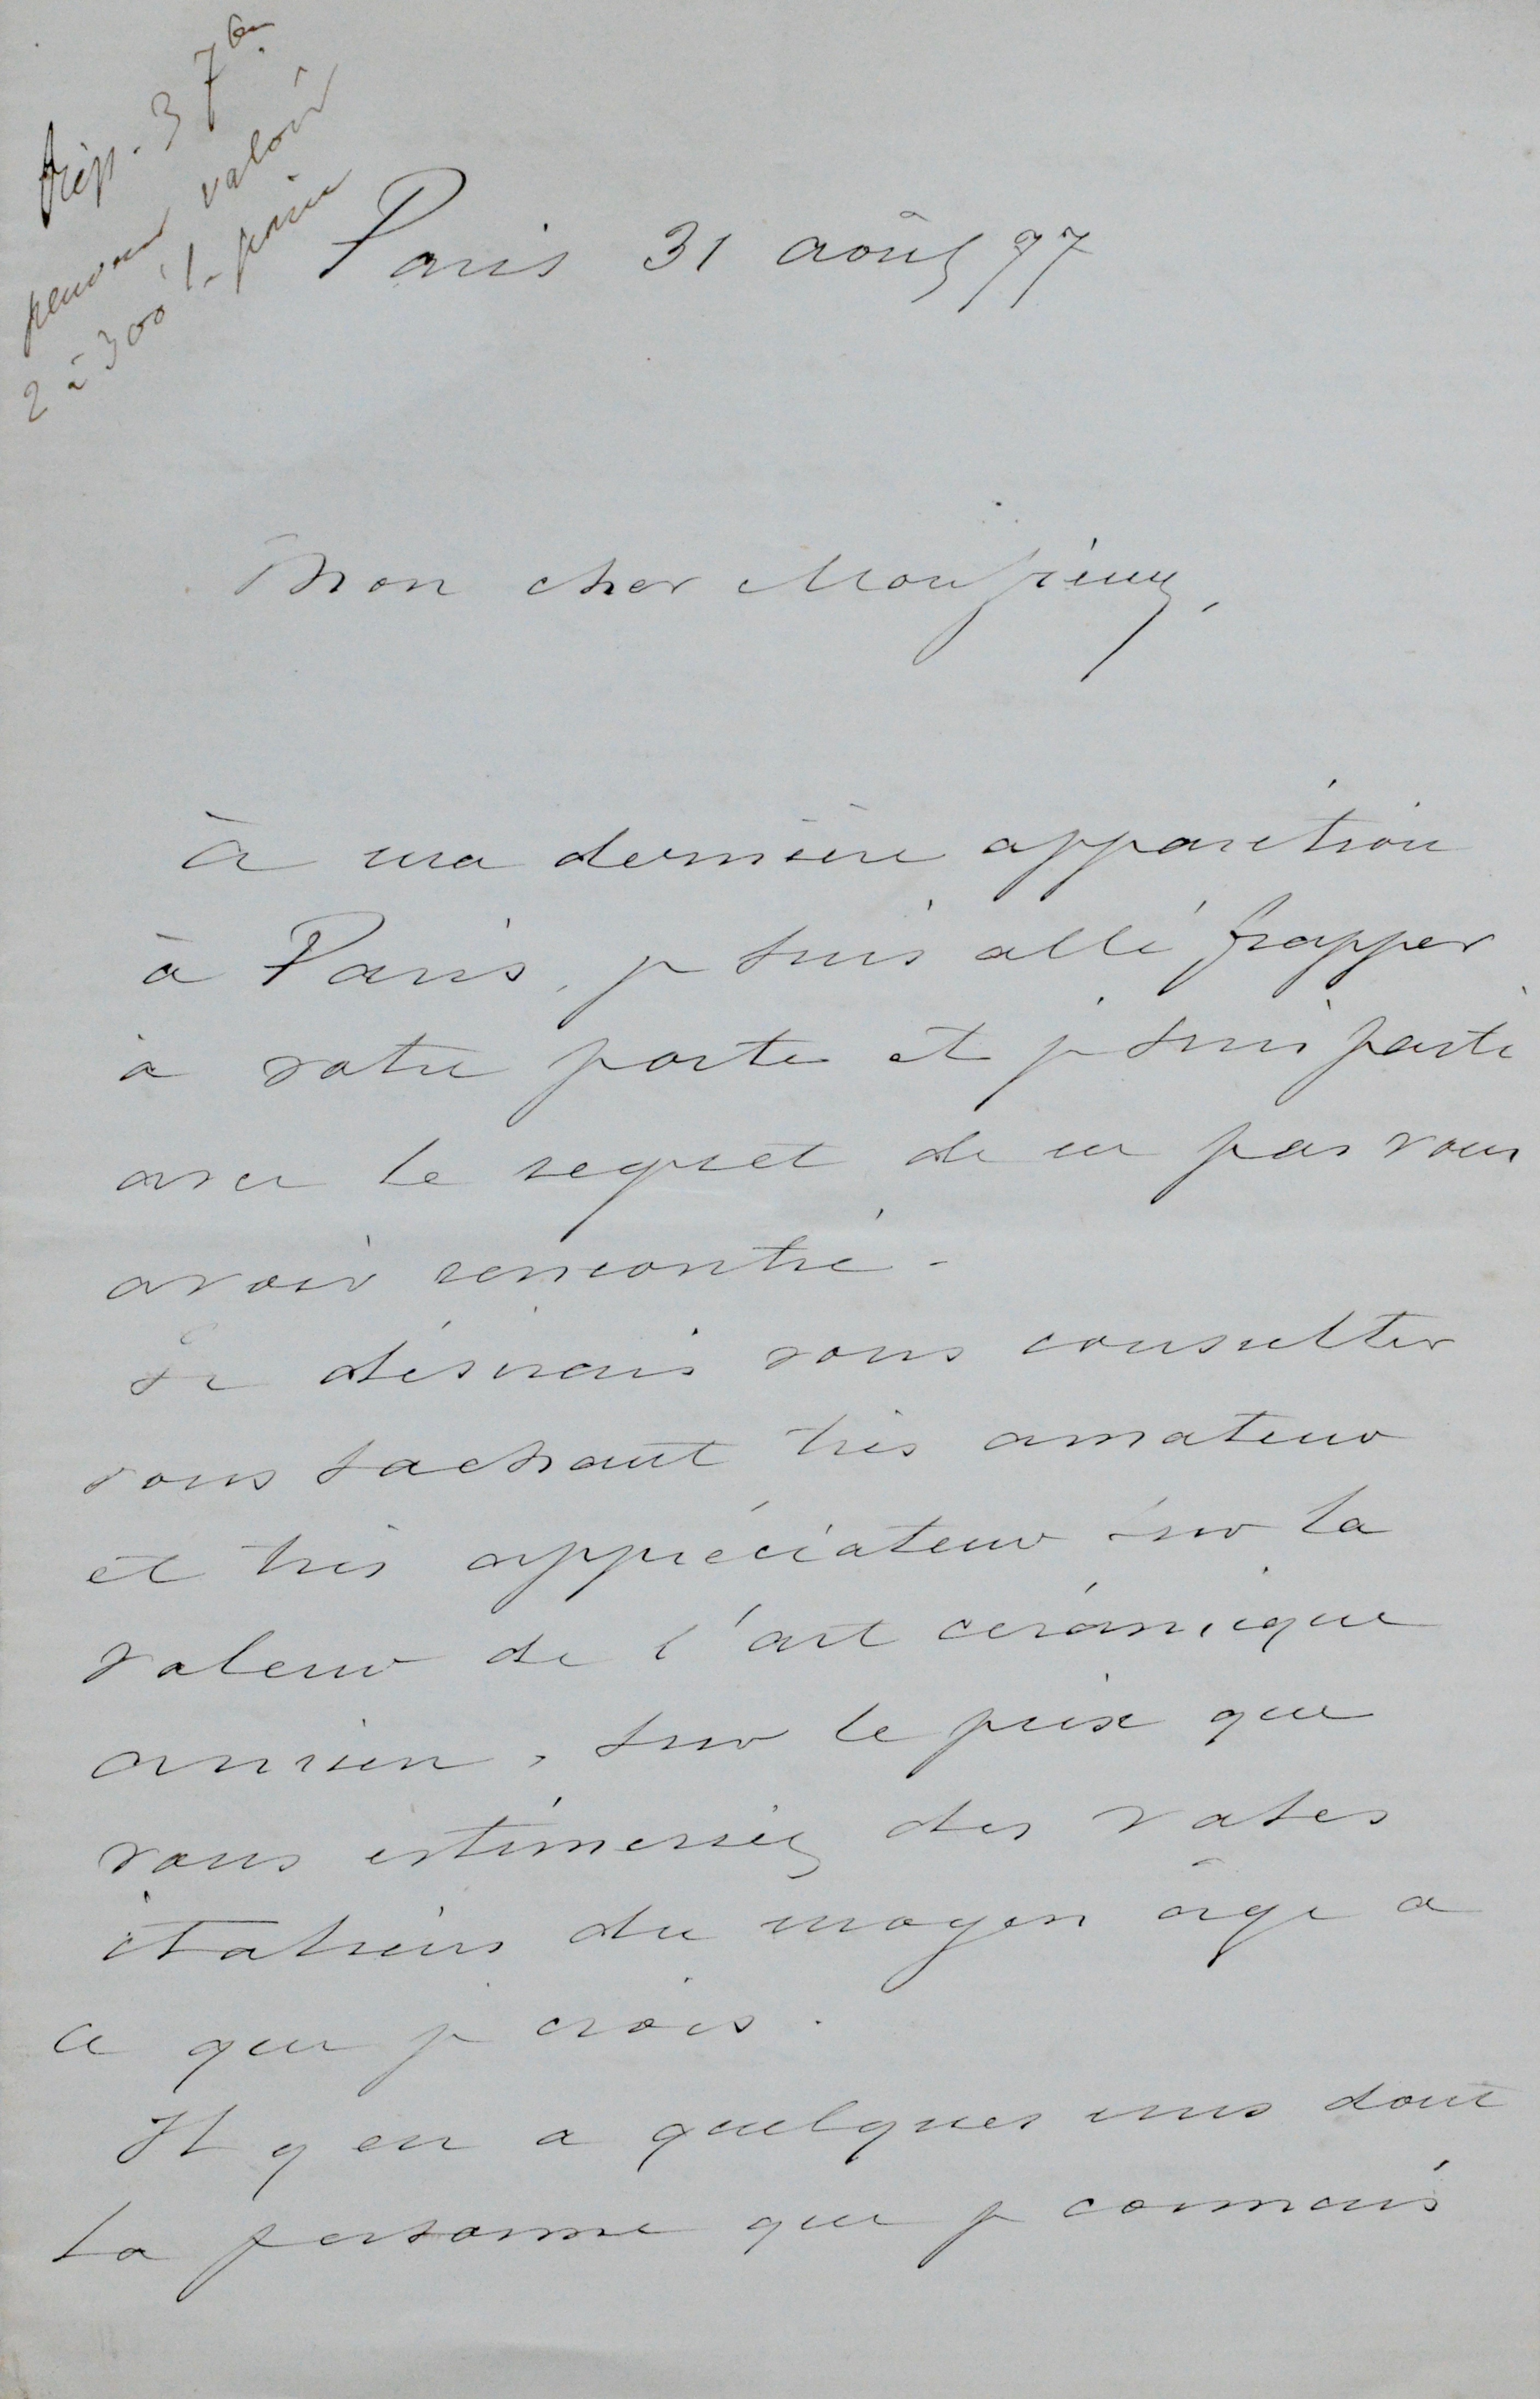 Rép. 3 7bre
peuvent valoir
2 à 300 f. pièce
Paris 31 août 97
Mon cher Monsieur,
à ma dernière apparition
à Paris, je suis allé frapper
à votre porte et je suis parti
avec le regret de ne pas vous
avoir rencontré.
Je désirais vous consulter
vous sachant très amateur
et très appréciateur sur la
valeur de l'art céramique
ancien, sur le prix que
vous estimeriez des vases
italiens du moyen âge a
ce que je crois.
Il y en a quelques uns dont
la personne que je connais